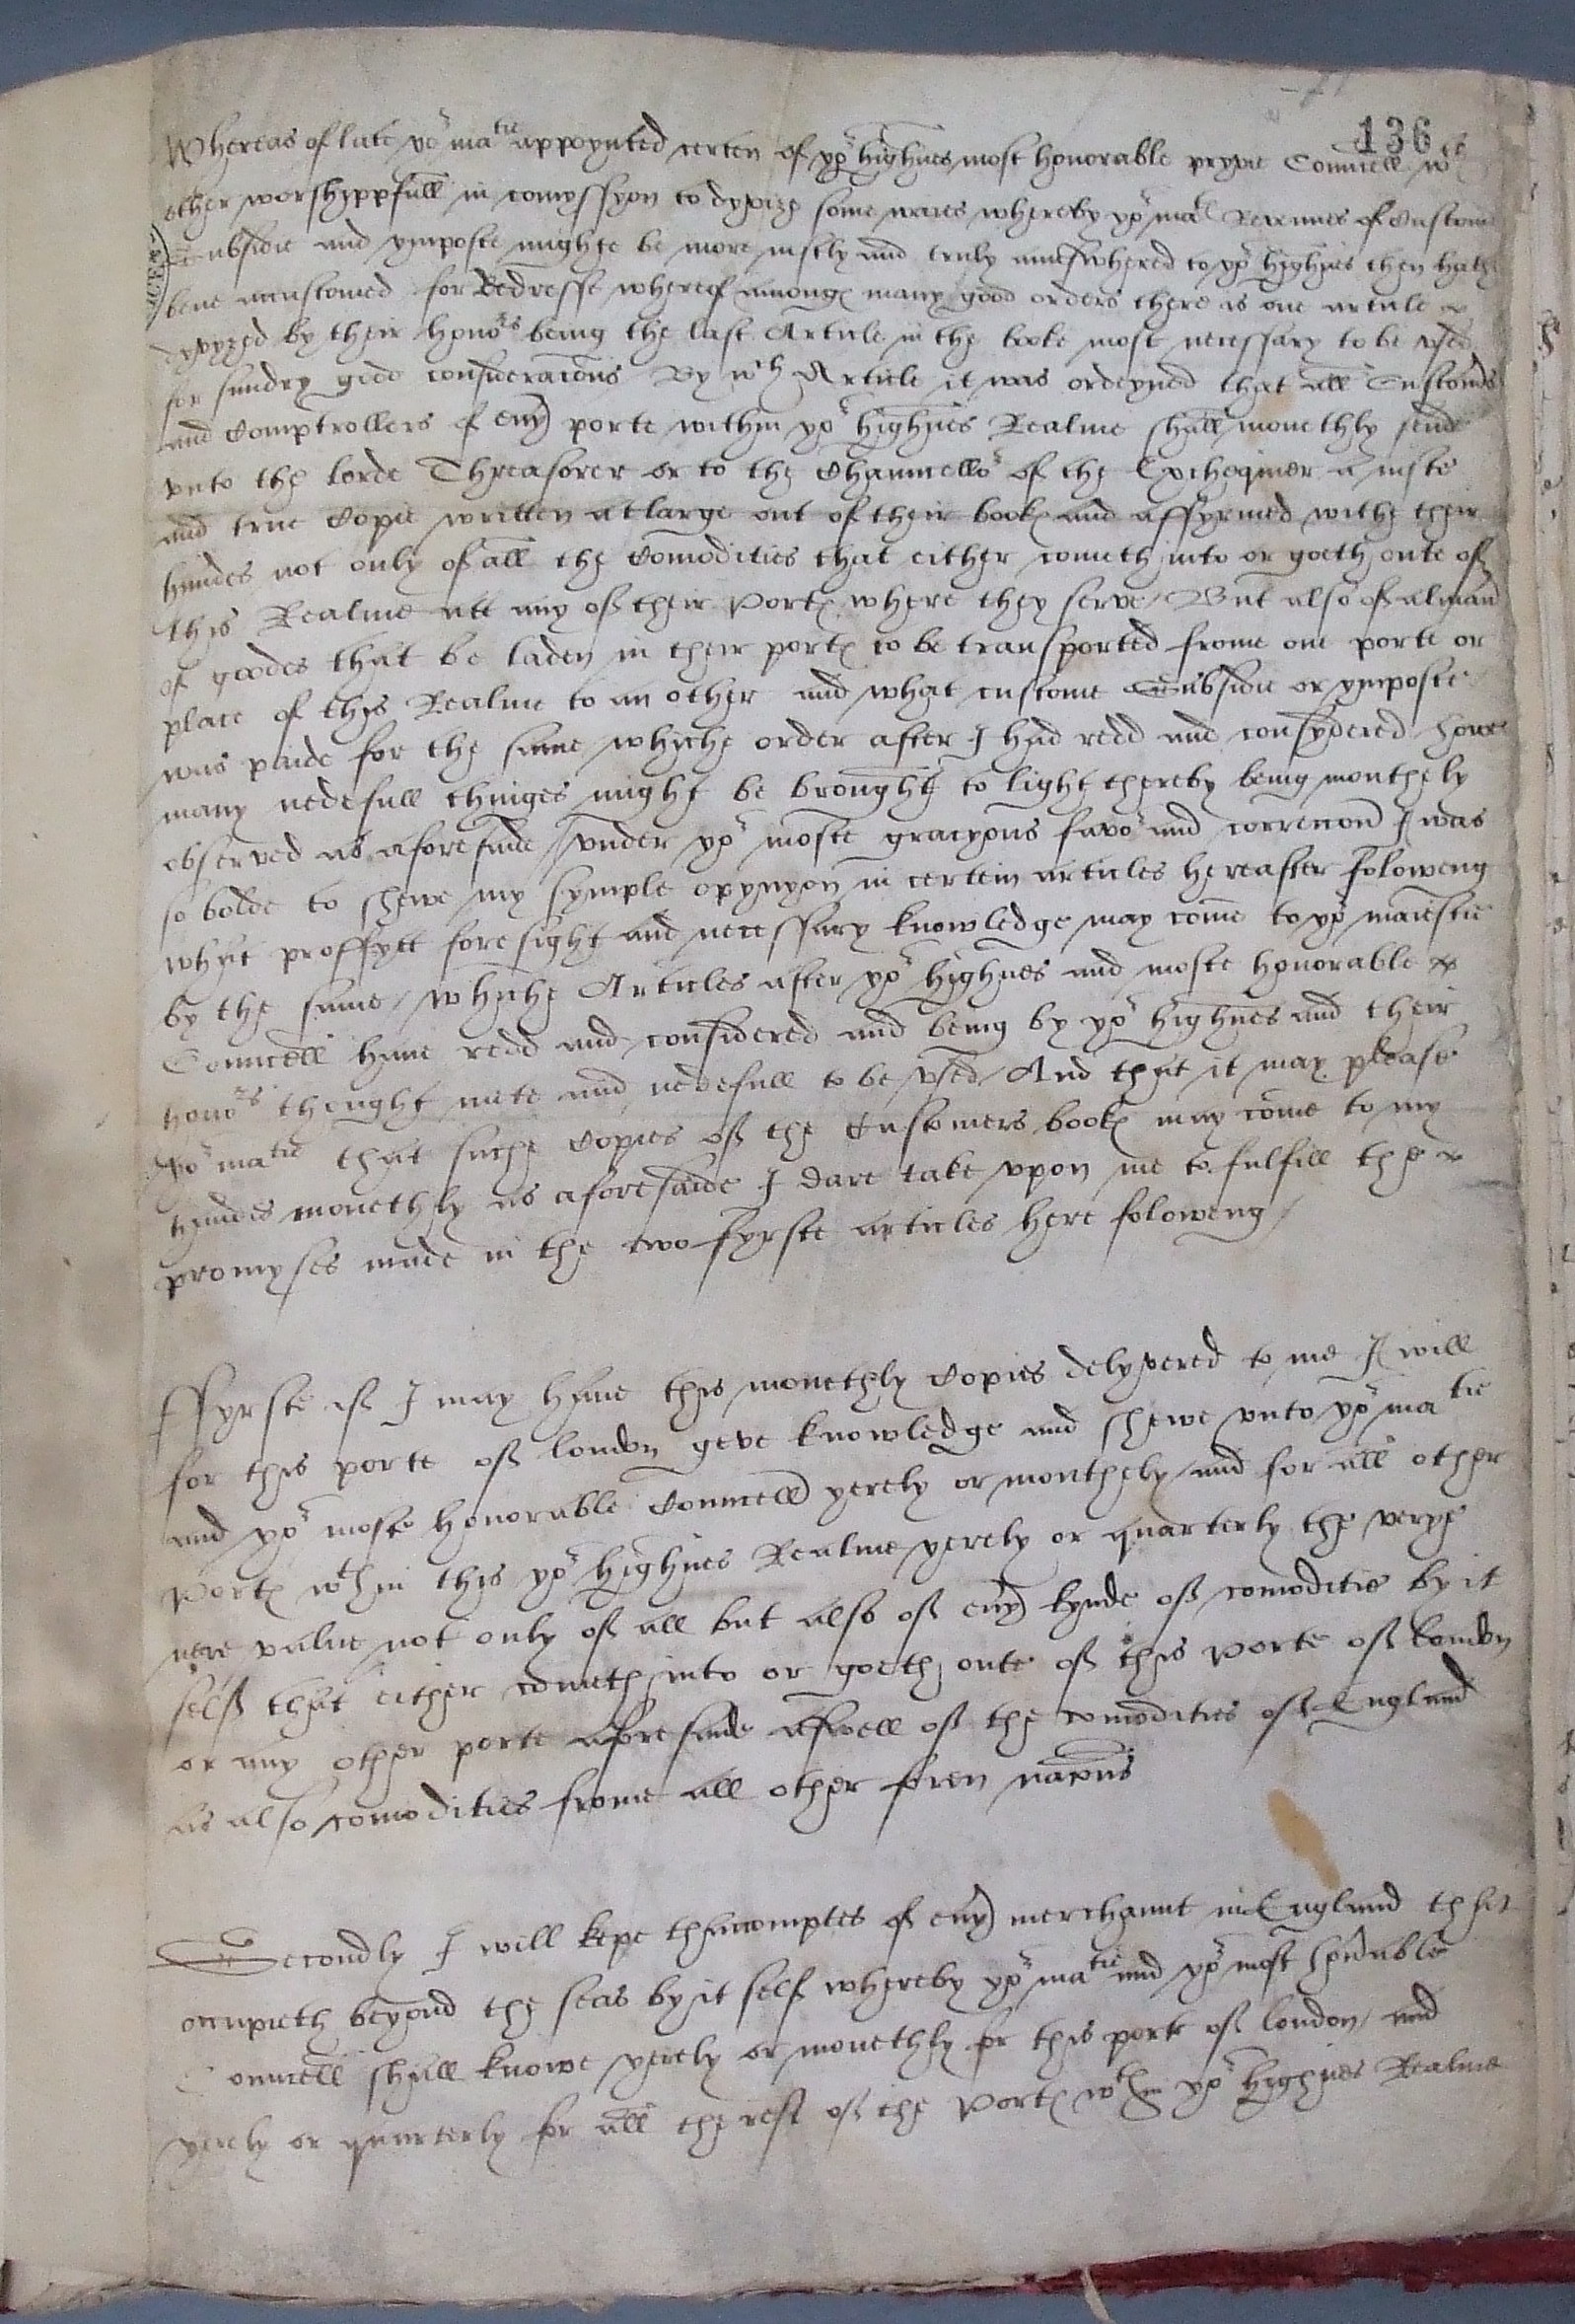 136
Whereas of late yor matie appoynted certen of yor highnes most honorable pryvie Councell wth
other worshippfull in comyssyon to dyvise some waies whereby yor mats Revenues of Custome
Subsidie and ymposte mighte be more iustly and truly aunswhered to yor highnes then hathe
bene accustomed for Redresse whereof amonge many good orders there is one article
dyvyzed by their honors being the last Article in the booke most necessary to be vsed
for sundry gode consideracions By wch Article it was ordeyned that all Customers
and Comptrollers of euy porte within yor highnes Realme shall monethly sende
vnto the lorde Threasorer or to the Chauncellor of the Exchequier a iuste
and true Copie written at large out of their bookes and affyrmed withe their
handes not only of all the Comodities that either cometh into or goeth oute of
this Realme att any of their Portes where they serve / But also of al maner
of goodes that be laden in their portes to be transported frome one porte or
place of this Realme to an other and what custome Subsidie or ymposte
was paide for the same whiche order after I had redd and consydered howe
many nedefull thinges might be brought to light thereby being monthely
observed as aforesaide / vnder yor moste gracyous favor and correccon I was
so bolde to shewe my symple opynyon in certein articles hereafter foloweng
what proffytt foresight and necessary knowledge may come to yor maiestie
by the same / whiche Articles after yor highnes and moste honorable
Councell haue redd and considered and being by yor highnes and their
honors thought mete and nedefull to be vsed / And that it may please
yor matie that suche Copies of the Customers bookes may come to my
handes monethly as aforesaide I dare take vpon me to fulfill the
promyses made in the two fyrste articles here foloweng /
Ffyrste if I may haue this monethly Copies delyvered to me I will
for this porte of london geve knowledge and shewe vnto yor matie
and yor moste honorable Councell yerely or monthely / and for all other
Portes wthin this yor highnes Realme yerely or quarterly the verye
nere value not only of all but also of euy kynde of comoditie by it
self that either cometh into or goeth oute of this Porte of london
or any other porte aforesaide aswell of the comodities of England
as also comodities frome all other foren nacons
Secondly I will kepe thaccomptes of euy merchaunt in England that
occupieth beyond the seas by it self whereby yor matie and yor most honorable
Councell shall knowe yerely or monethly for this porte of london / and
yerely or quarterly for all the rest of the Portes wthin yor highnes Realme